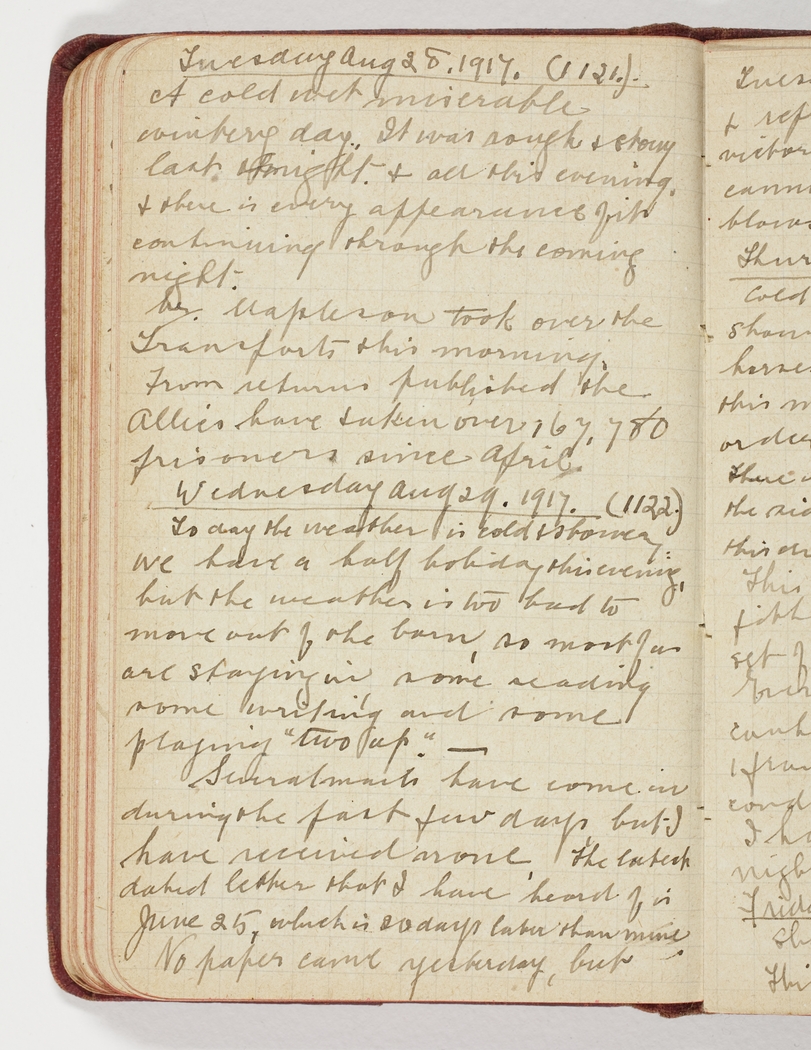 Tuesday Aug 28. 1917. (1121.)
A cold wet miserable
wintery day. It was rough & stormy
last night. & all this evening.
& there is every appearance of it
continuing through the coming
night.
Mr. Mapleson took over the
Transports this morning.
From returns published the
Allies have taken over 167,780
prisoners since April.
Wednesday Aug 29. 1917. (1122.)
Today the weather is cold & showery,
we have a half holiday this evening,
but the weather is too bad to
move out of the barn, so most of us
are staying in, some reading
some writing and some
playing "two up". —
Several mails have come in
during the past few days, but I
have received none. The latest
dated letter that I have heard of is
June 25, which is 20 days later than mine
No paper came yesterday, but
Tues
& ref
victor
cann
blows
Thur
Cold
show
horses
this m
order
There
the sid
this
This
set of
Ever
I ha
night
Frida
Thi